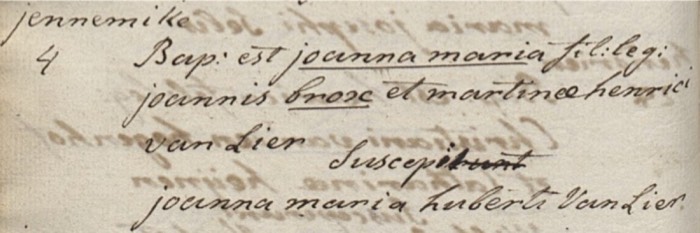 jennemike
4 Bap: est joanna maria fil: leg:
joannis brox et martinæ henrici
van Lier
Suscepit
joanna maria huberti Van Lier